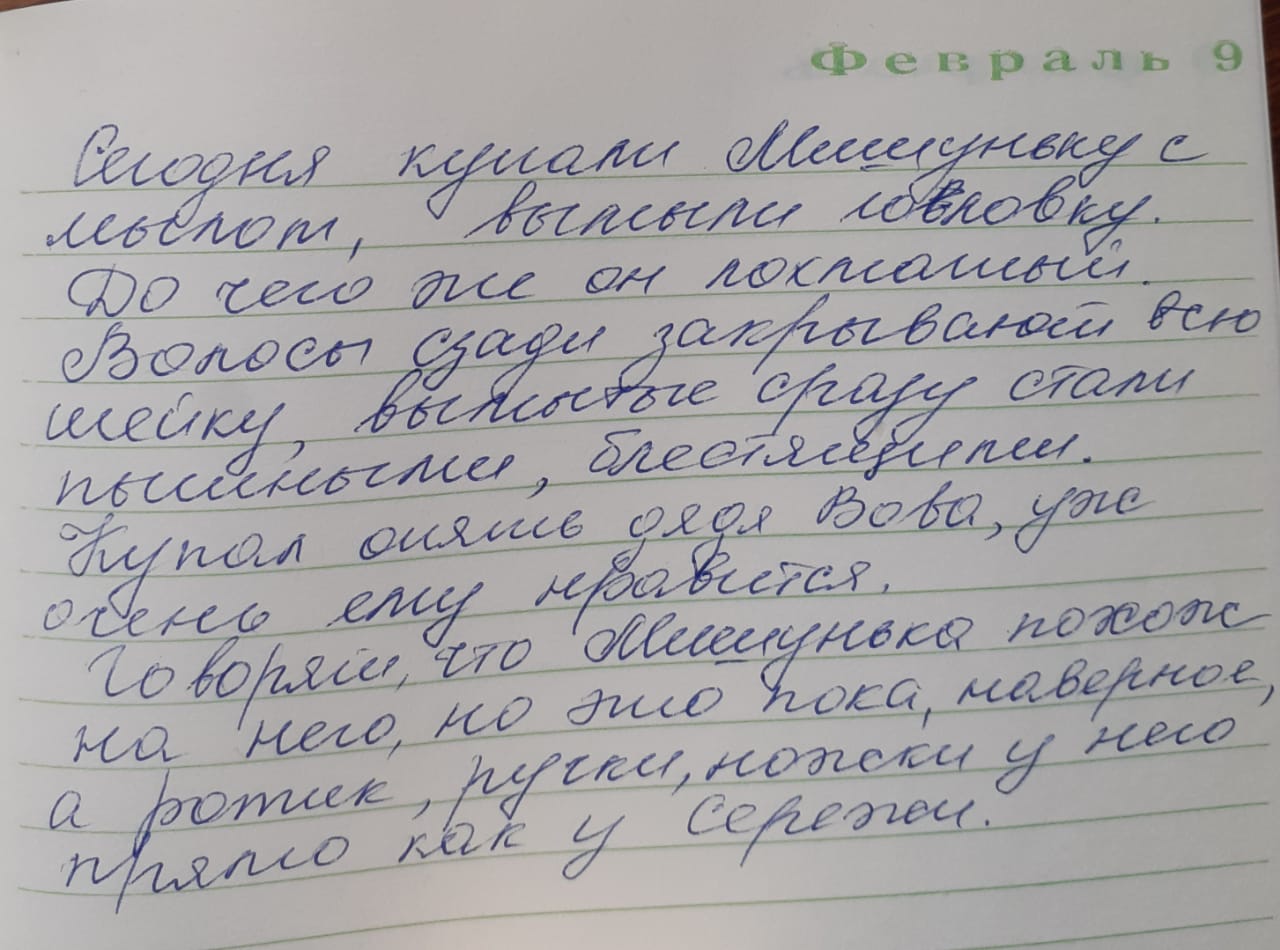 Февраль 9
Сегодня купали Мишуньку с
мылом, вымыли головку.
До чего же он лохматый.
Волосы сзади закрывают всю
шейку, вымытые сразу стали
пышными, блестящими.
Купал опять дядя Вова, уж
очень ему нравится.
Говорят, что Мишунька похож
на него, но это пока, наверное,
а ротик, ручки, ножки у него
прямо как у Сережи.